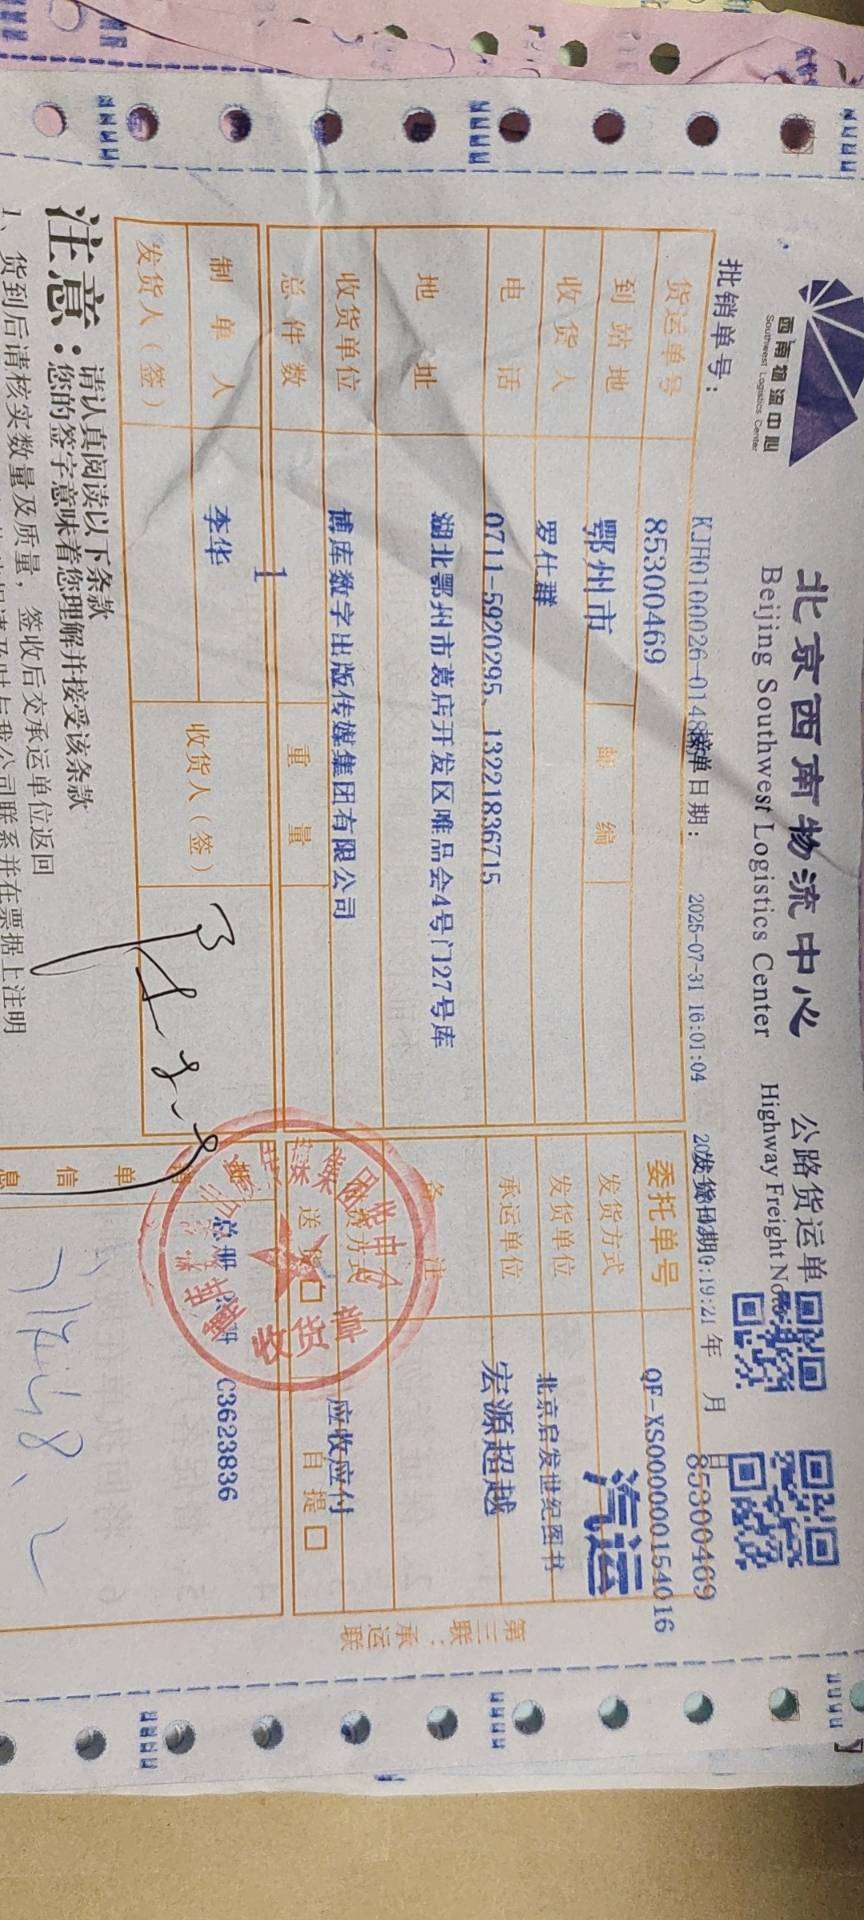 西南物流中心
Southwest Logistics Center
北京西南物流中心 公路货运单
Beijing Southwest Logistics Center Highway Freight No
批销单号: KJH0100026-0148 接单日期: 2025-07-31 16:01:04 发货日期 0:19:21 年 月 日
85300469
货运单号 85300469 委托单号 QF-XS00000154016
到站地 鄂州市 邮编 发货方式 汽运
收货人 罗仕群 发货单位 北京启发世纪图书
电话 0711-5920295、13221836715 承运单位 宏源超越
地址 湖北鄂州市葛店开发区唯品会4号门27号库 备注
收货单位 博库数字出版传媒集团有限公司 应收应付
总件数 1 重量 送货 自提
制单人 李华 收货人(签) 单信息 C3623836
发货人(签)
收货章
第三联:承运联
注意:请认真阅读以下条款
您的签字意味着您理解并接受该条款
1、货到后请核实数量及质量,签收后交承运单位返回